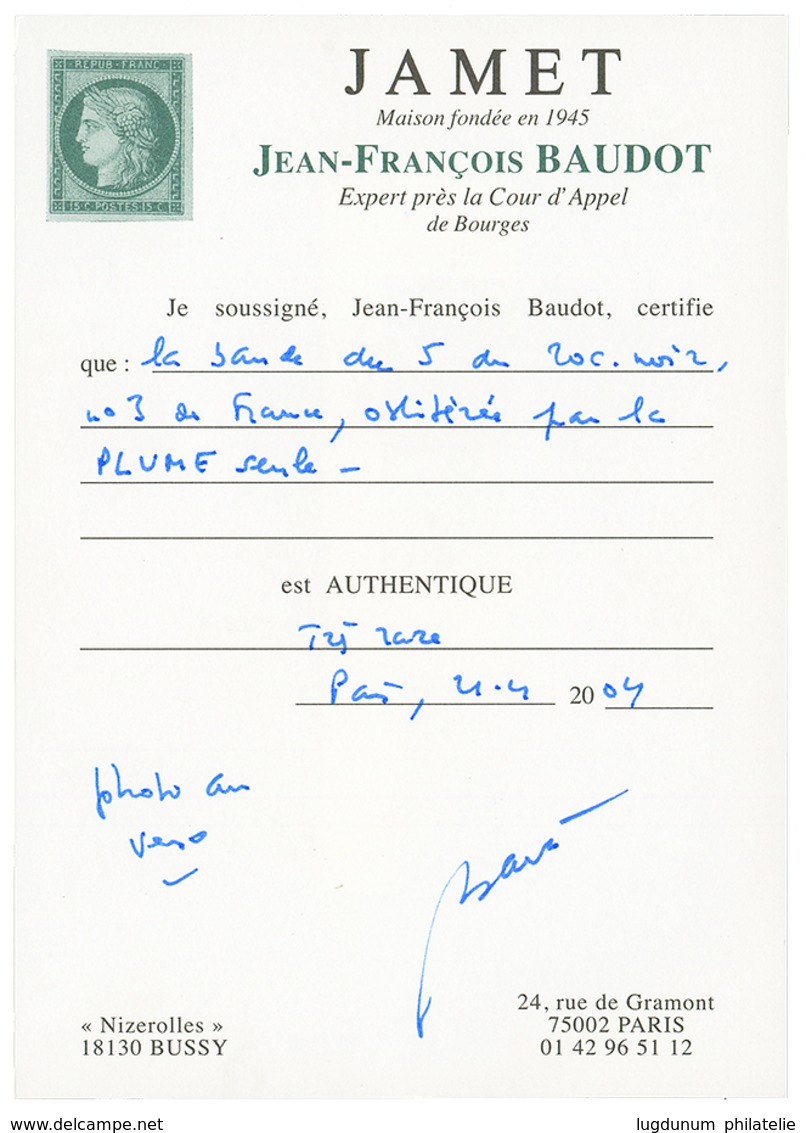 REPUB·FRANC
15 C·POSTES·15 C
JAMET
Maison fondée en 1945
JEAN-FRANÇOIS BAUDOT
Expert près la Cour d'Appel
de Bourges
Je soussigné, Jean-François Baudot, certifie
que : la bande de 5 du 20c. noir,
no 3 de France, oblitérée par la
PLUME seule –
est AUTHENTIQUE
Très rare
Paris, 21.4 2004
photo au
verso
« Nizerolles »
18130 BUSSY
24, rue de Gramont
75002 PARIS
01 42 96 51 12
www.delcampe.net
lugdunum philatelie